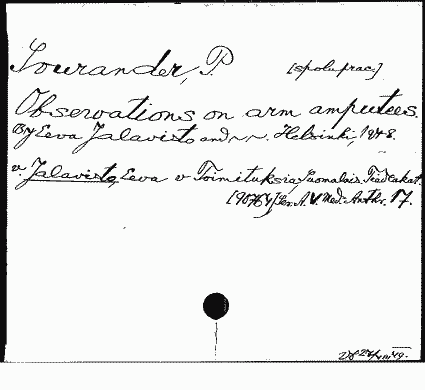 Sourander, P. [spoluprac.]
Observations on arm amputees.
By Eeva Jalavisto and ~ ~. Helsinki, 1948.
v. Jalavisto, Eeva v Toimituksia, Suomalais. Tiedeakat.
[9076Y] Ser. A. V. Med.-Anthr. 17.